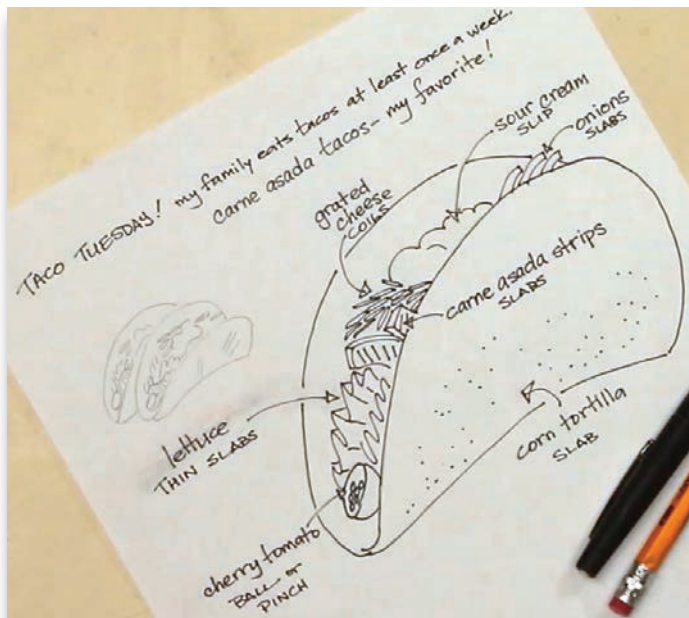 TACO TUESDAY! my family eats tacos at least once a week.
carne asada tacos – my favorite!
sour cream
SLIP
onions
SLABS
grated
cheese
COILS
carne asada strips
SLABS
lettuce
THIN SLABS
corn tortilla
SLAB
cherry tomato
BALL or
PINCH